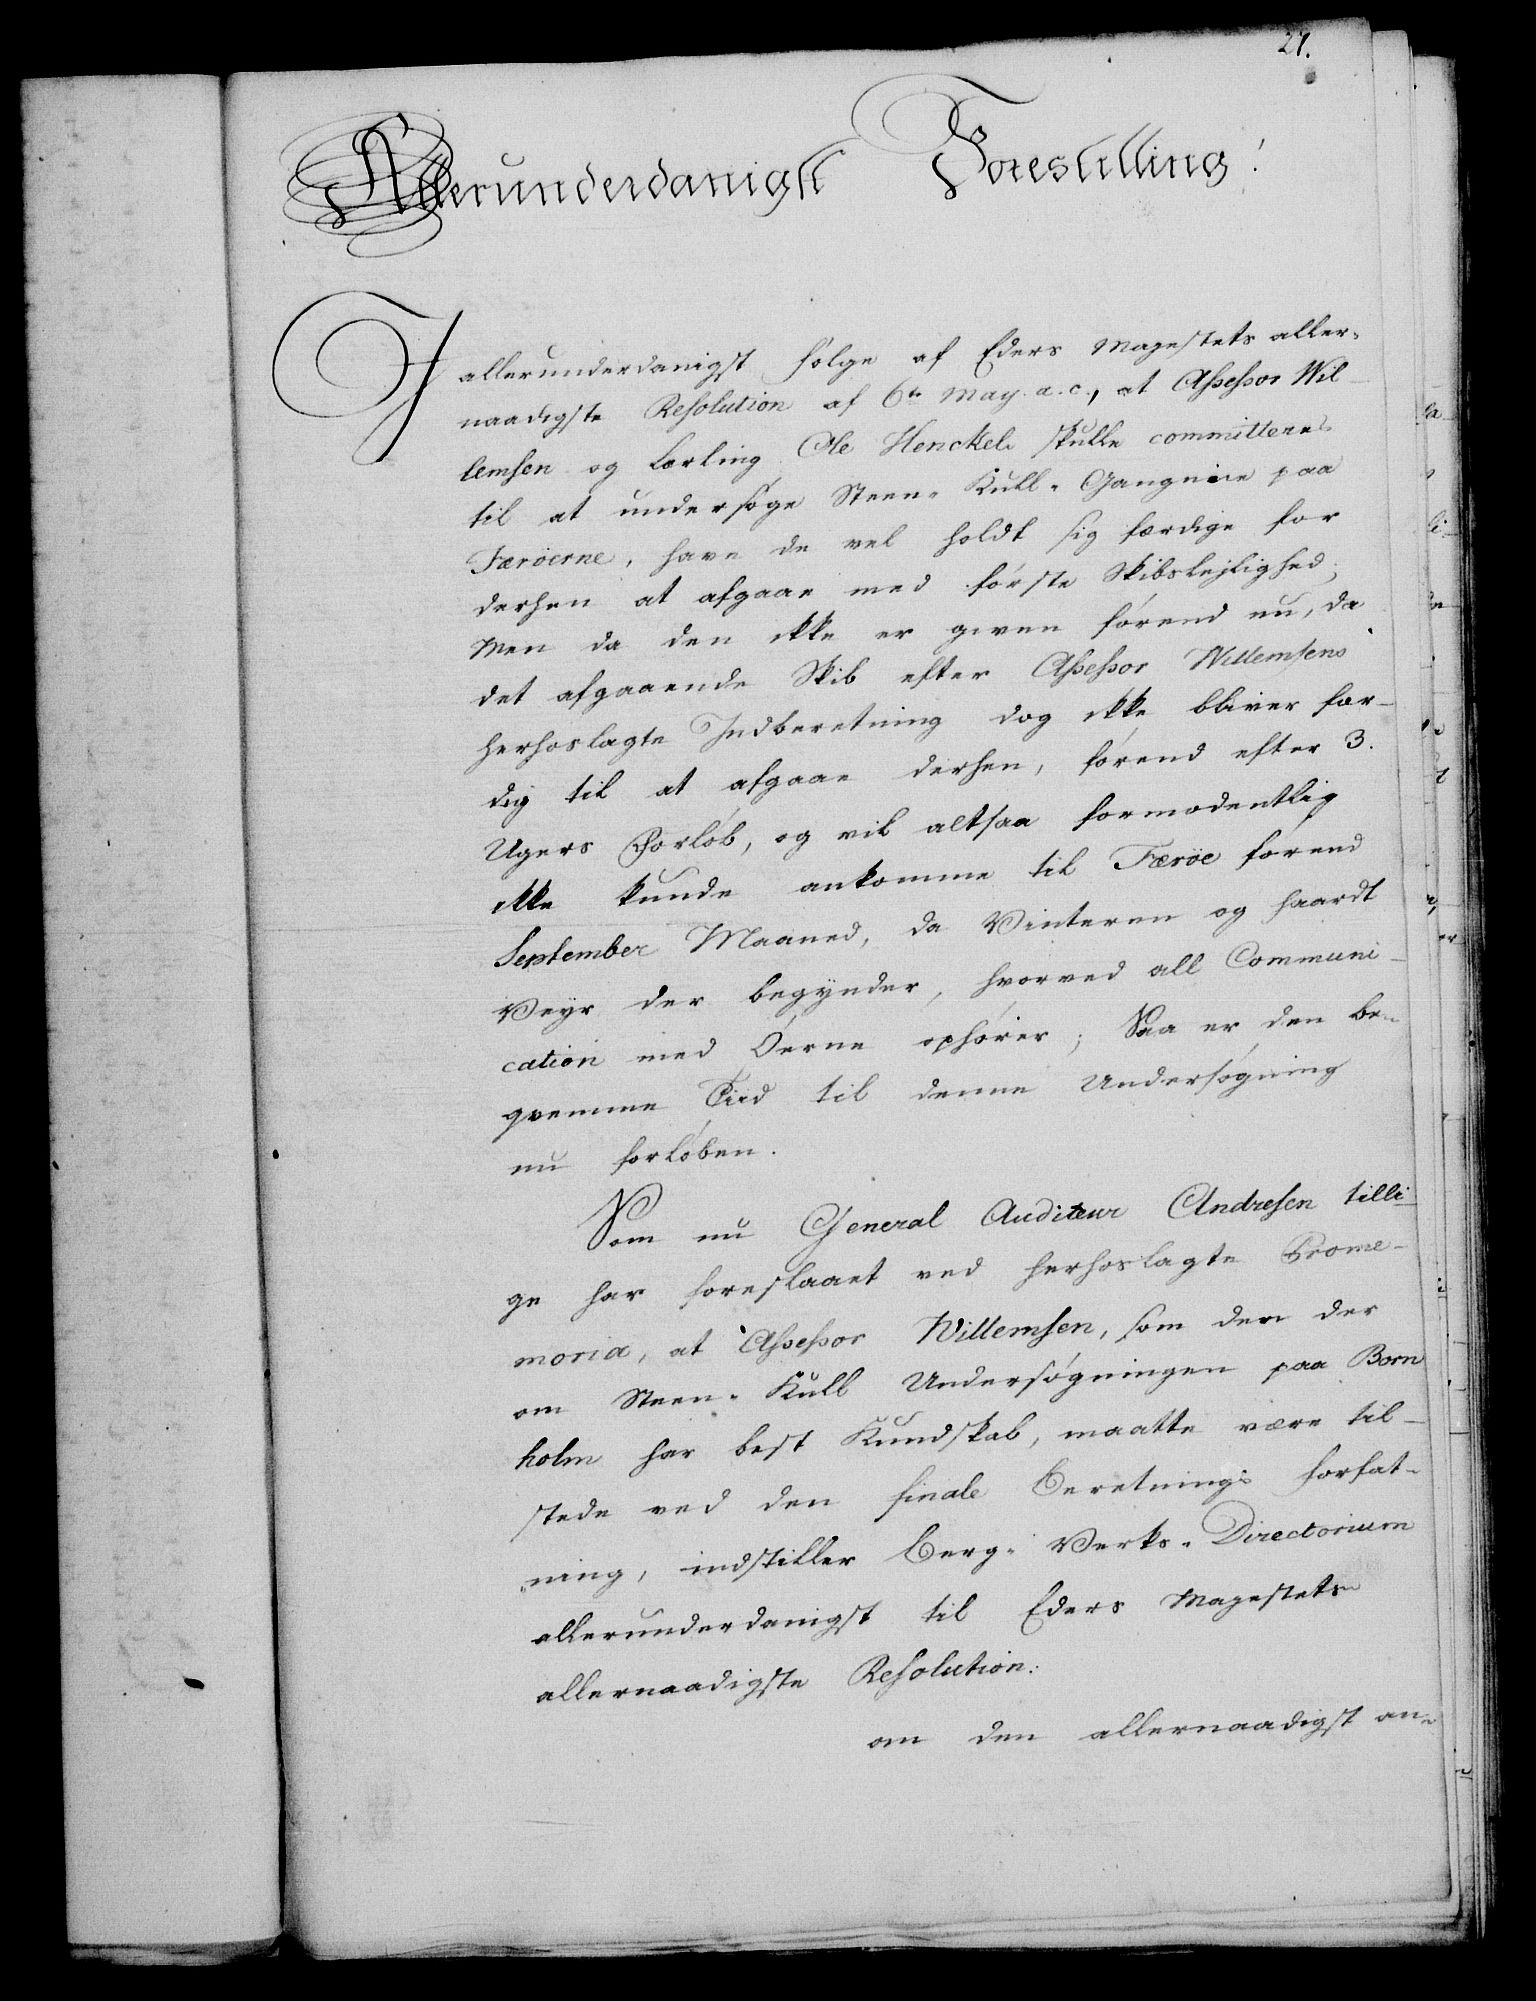 27.
Allerunderdanigst Forestilling!
I allerunderdanigst følge af Eders Majestets aller-
naadigste Resolution af 6te May a. c., at Assessor Wil-
lemsen og Lærling Ole Henckel skulle committeres
til at undersøge Steen-Kull-Gangene paa
Færöerne, have de vel holdt sig færdige for
derhen at afgaae med første Skibsleylighed;
Men da den ikke er given førend nu, da
det afgaaende Skib efter Assessor Willemsens
herhoslagte Indberetning dog ikke bliver fær-
dig til at afgaae derhen, førend efter 3.
Ugers Forløb, og vil altsaa formodentlig
ikke kunde ankomme til Færöe førend
September Maaned, da Vinteren og haardt
Veyr der begynder, hvorved all Communi-
cation med Öerne ophører; Saa er den be-
qvemme Tiid til denne Undersøgning
nu forløben.
Som nu General Auditeur Andresen tilli-
ge har foreslaaet ved herhoslagte Prome-
moria, at Assessor Willemsen, som den der
om Steen-Kull Undersøgningen paa Born
holm har best Kundskab, maatte være til-
stede ved den finale Beretnings forfat-
ning, indstiller Berg-Verks-Directorium
allerunderdanigst til Eders Majestets
allernaadigste Resolution:
om den allernaadigst an-